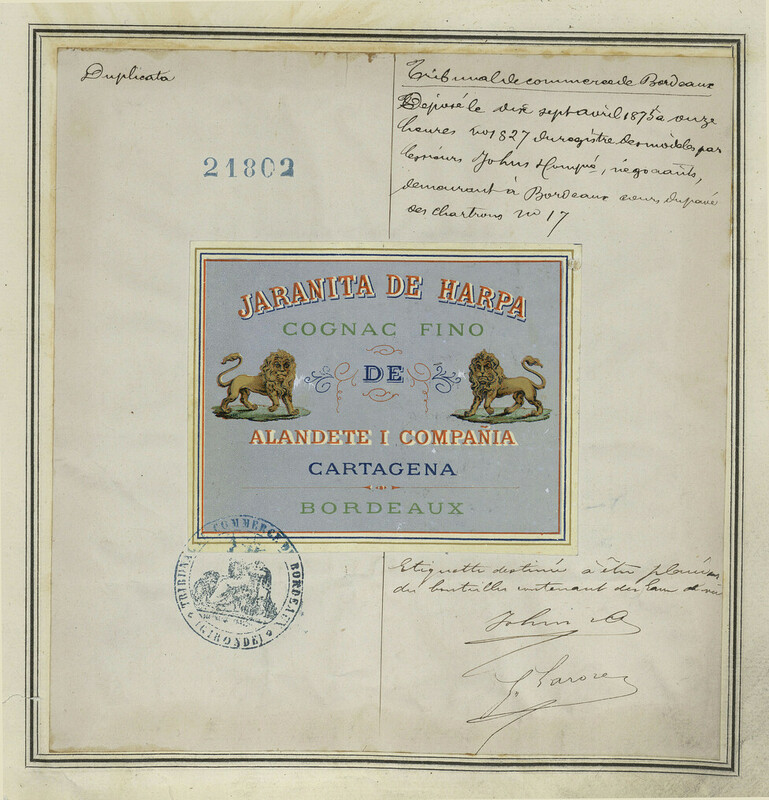 Duplicata
Tribunal de commerce de Bordeaux
Déposé le dix sept avril 1875 à onze
heures no 1827 du registre des modèles par
les sieurs Johns &, négociants,
demeurant à Bordeaux cours du pavé
des chartrons no 17
21802
JARANITA DE HARPA
COGNAC FINO
DE
ALANDETE I COMPAÑIA
CARTAGENA
BORDEAUX
TRIBUNAL DE COMMERCE DE BORDEAUX
(GIRONDE)
Etiquette destinée à être
bouteilles contenant des eaux de vie